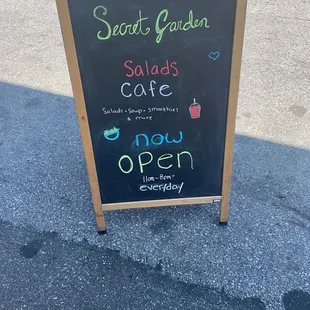 Secret Garden
Salads
Cafe
Salads • Soup • smoothies
& more
now
OPEN
11am - 8pm
everyday